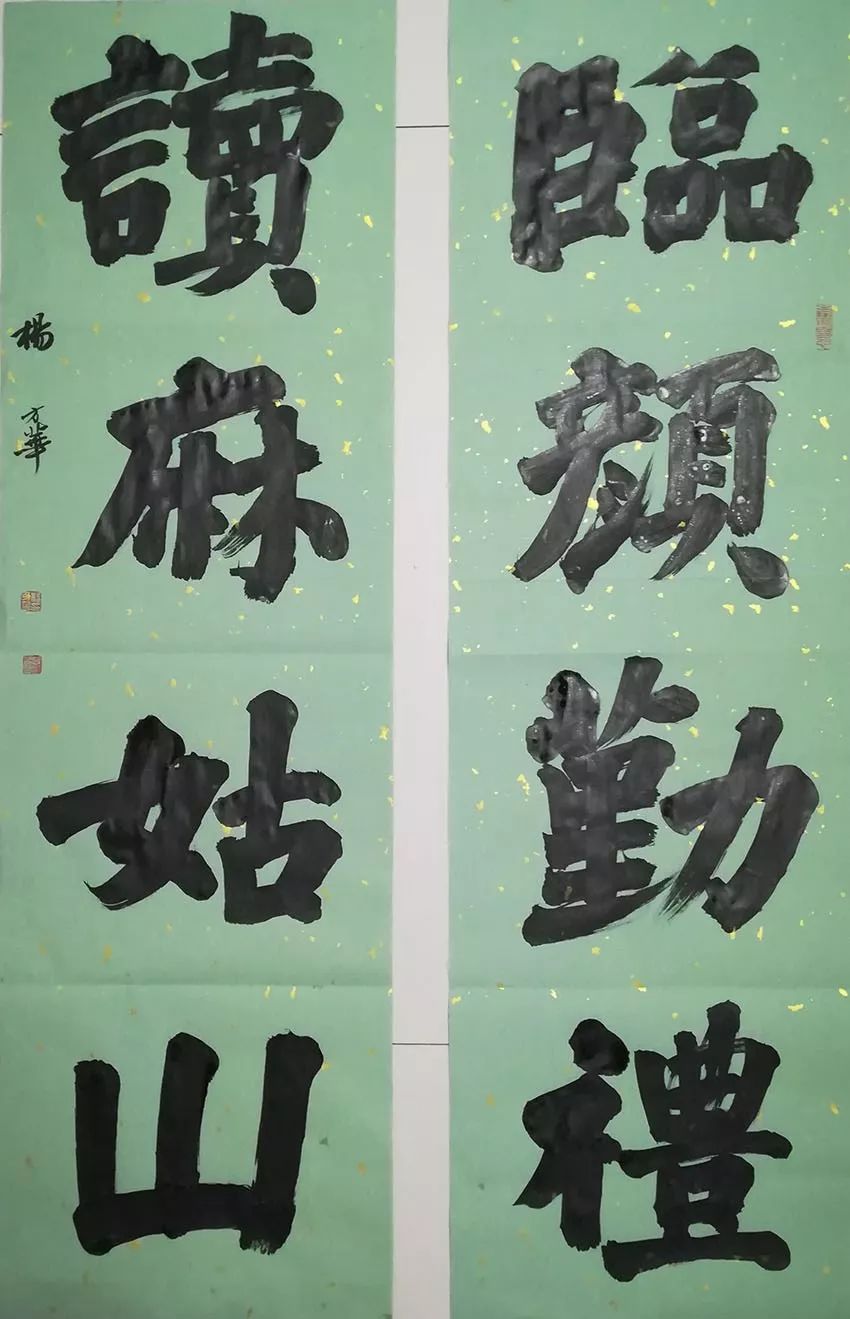 臨顔勤禮
讀麻姑山
楊方華